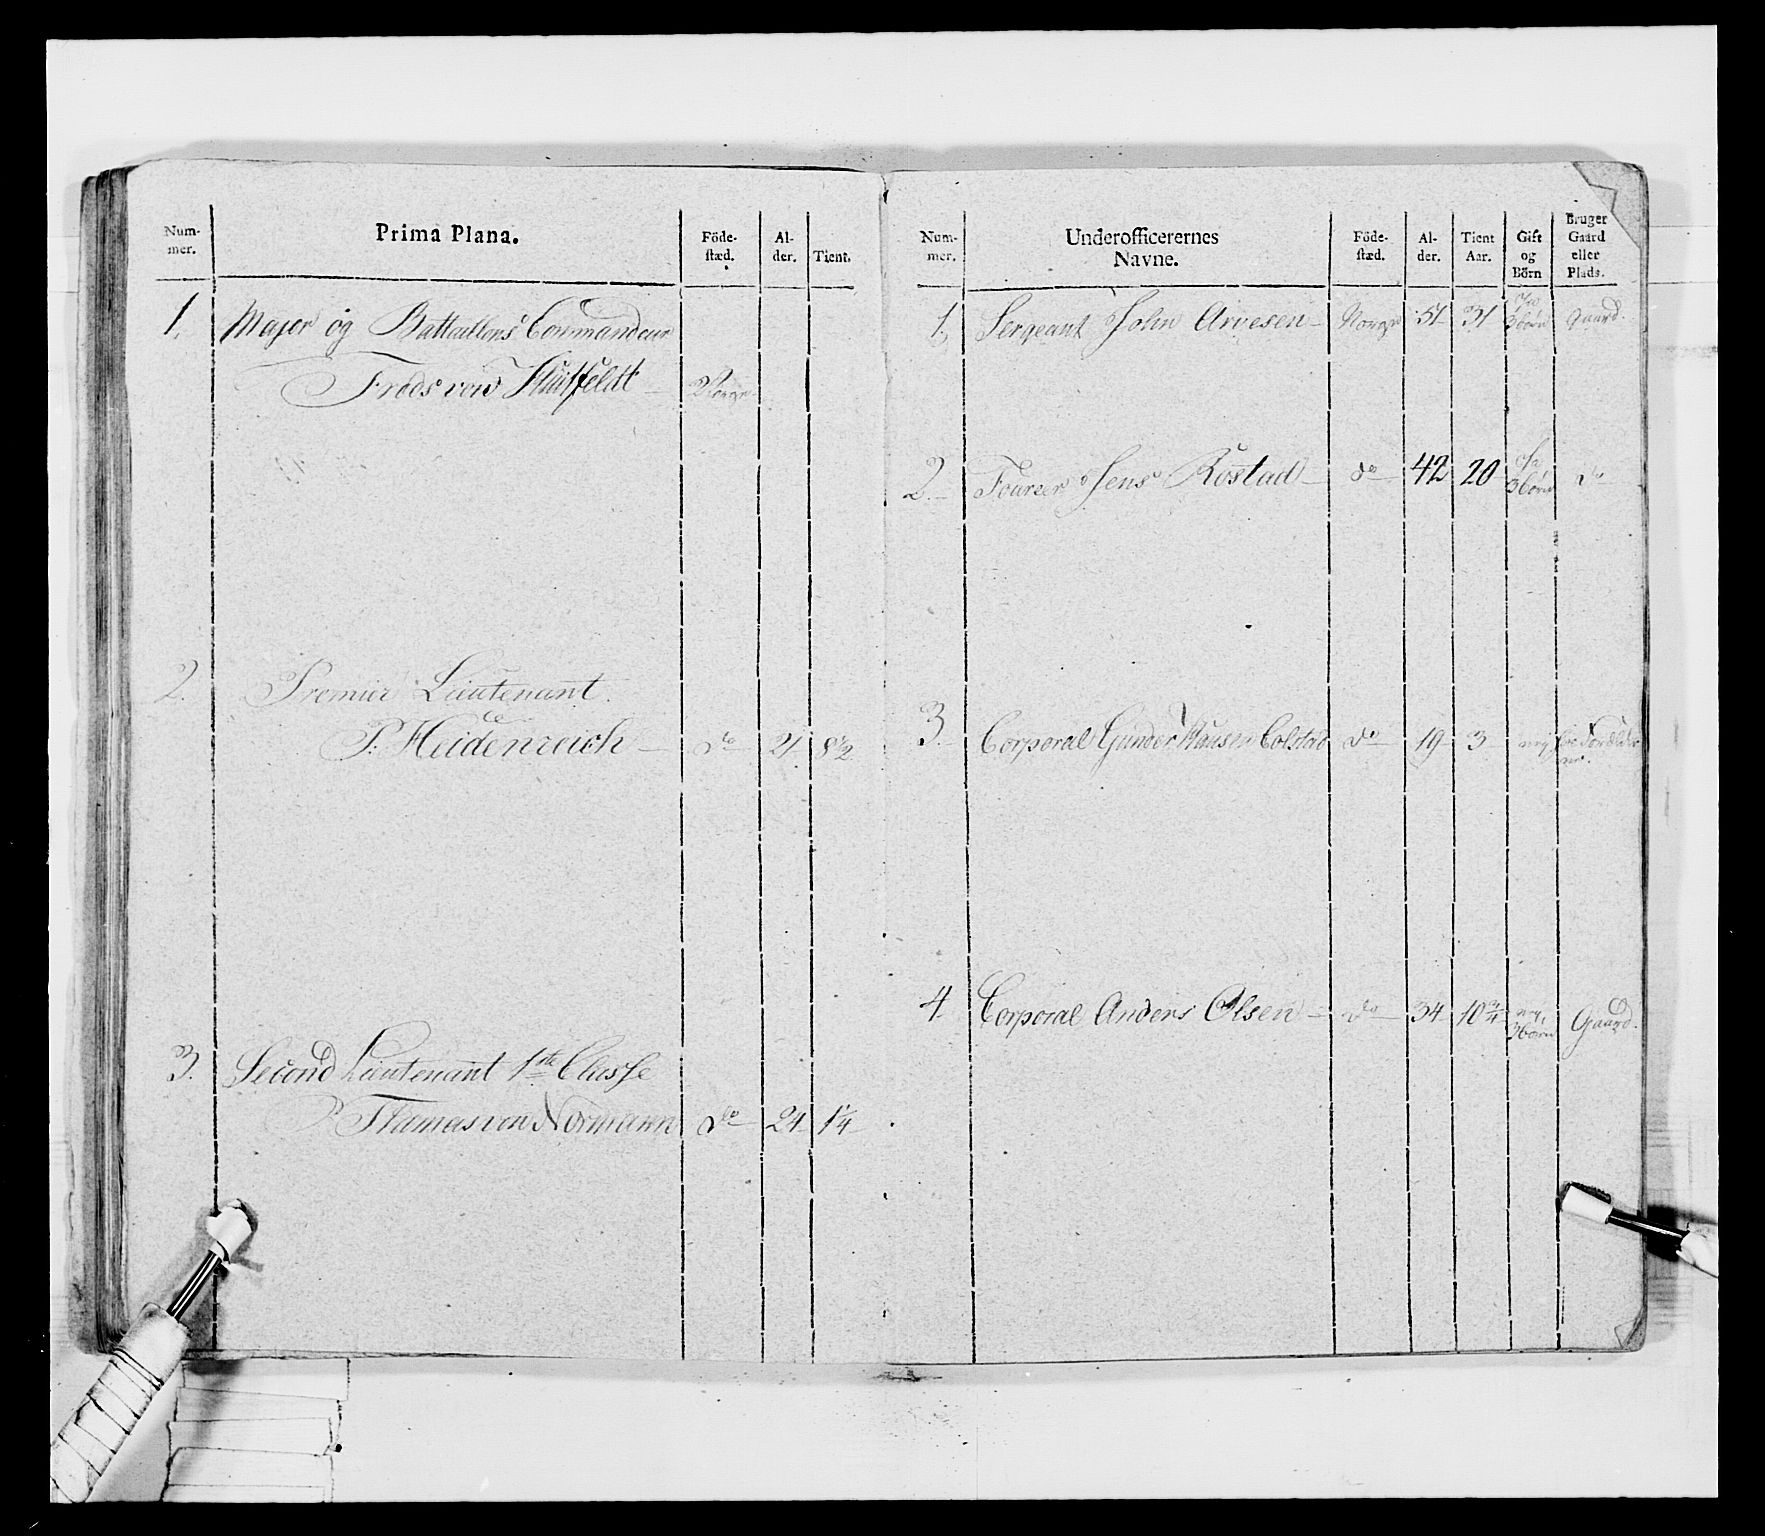 Num-
mer.
Prima Plana.
Föde-
stæd.
Al-
der.
Tient.
1. Major og Battaillons Commandeur
von Huitfeldt Norge
2. Premier Lieutenant
P. Heidenreich do 21 8½
3. Second Lieutenant 1ste Classe
Thomas von Normann do 24 1¼
Num-
mer.
Underofficerernes
Navne.
Föde-
stæd.
Al-
der.
Tient
Aar.
Gift
og
Börn
Bruger
Gaard
eller
Plads.
1. Sergeant John Arvesen Norge 51 31 3 börn Gaard.
2. Foureer Jens Rostad do 42 20 3 börn do
3. Corporal Gunder Hansen Colstad do 19 3
4. Corporal Anders Olsen do 34 10¾ 3 börn Gaard.